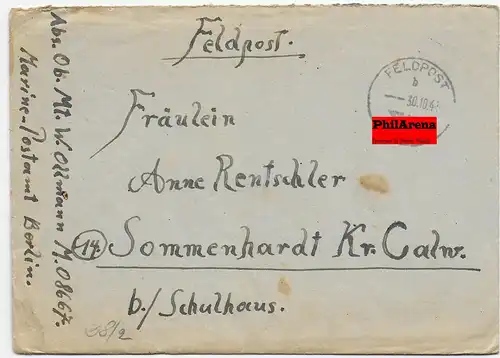 Feldpost.
FELDPOST
b
30.10.4
PhilArena
Fräulein
Anne Rentschler
14 Sommenhardt Kr. Calw.
b./ Schulhaus.
Abs. Ob. Mt. W. Ollmann M.08667.
Marine-Postamt Berlin.